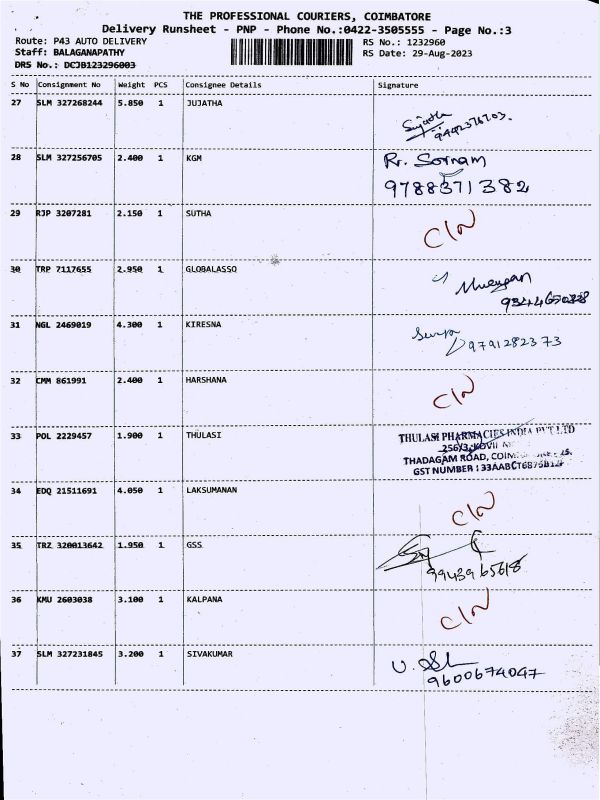 THE PROFESSIONAL COURIERS, COIMBATORE
Delivery Runsheet - PNP - Phone No.:0422-3505555 - Page No.:3
Route: P43 AUTO DELIVERY RS No.: 1232960
Staff: BALAGANAPATHY RS Date: 29-Aug-2023
DRS No.: DCJB123296003
S No Consignment No Weight PCS Consignee Details Signature
27 SLM 327268244 5.850 1 JUJATHA
Sujatha
28 SLM 327256705 2.400 1 KGM Rr. Sornam
9788371382
29 RJP 3207281 2.150 1 SUTHA
C/N
30 TRP 7117655 2.950 1 GLOBALASSO
Murugan
31 NGL 2469019 4.300 1 KIRESNA
Surya
9791282373
32 CMM 861991 2.400 1 HARSHANA
C/N
33 POL 2229457 1.900 1 THULASI THULASI PHARMACIES INDIA PVT LTD
256/3, KOVIL
THADAGAM ROAD,
GST NUMBER :
34 EDQ 21511691 4.050 1 LAKSUMANAN
C/N
35 TRZ 320013642 1.950 1 GSS
9943965618
36 KMU 2603038 3.100 1 KALPANA
C/N
37 SLM 327231845 3.200 1 SIVAKUMAR
9600674047